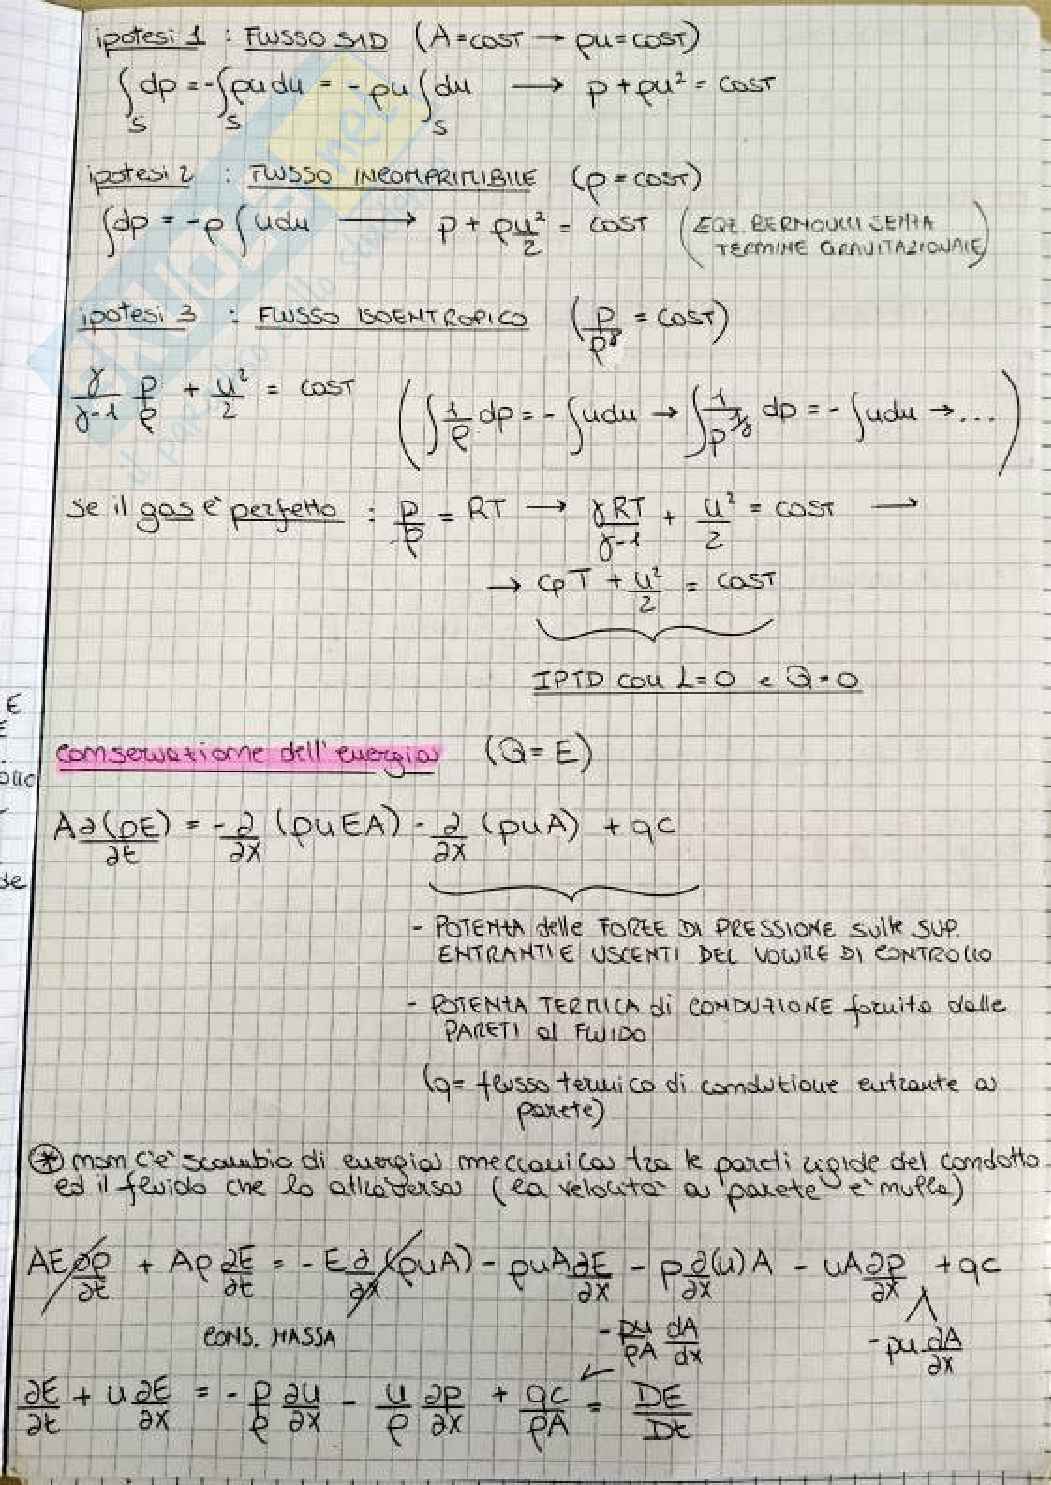 ipotesi 1 : FLUSSO S1D (A = COST → ρu = COST)
∫_S dp = -∫_S ρu du = -ρu ∫_S du → p + ρu² = COST
ipotesi 2 : FLUSSO INCOMPRIMIBILE (ρ = COST)
∫dp = -ρ ∫ u du → p + ρu²/2 = COST (EQZ. BERNOULLI SENZA
TERMINE GRAVITAZIONALE)
ipotesi 3 : FLUSSO ISOENTROPICO (p/ρ^γ = COST)
γ/(γ-1) p/ρ + u²/2 = COST (∫ 1/ρ dp = -∫ u du → ∫ 1/p^(1/γ) dp = -∫ u du → ...)
se il gas è perfetto : p/ρ = RT → γRT/(γ-1) + u²/2 = COST →
→ cpT + u²/2 = COST
IPTD con L=0 e Q=0
conservazione dell'energia (Q = E)
A ∂(ρE)/∂t = -∂/∂x (ρuEA) - ∂/∂x (puA) + qC
- POTENZA delle FORZE DI PRESSIONE sulle SUP.
ENTRANTI E USCENTI DEL VOLUME DI CONTROLLO
- POTENZA TERMICA di CONDUZIONE fornita dalle
PARETI al FLUIDO
(q = flusso termico di conduzione entrante a
parete)
⊛ non c'è scambio di energia meccanica tra le pareti rigide del condotto
ed il fluido che lo attraversa (la velocità a parete è nulla)
AE ∂ρ/∂t + Aρ ∂E/∂t = -E ∂/∂x (ρuA) - ρuA ∂E/∂x - p ∂(u)/∂x A - uA ∂p/∂x + qC
CONS. MASSA
-pu/ρA dA/dx
-pu dA/∂x
∂E/∂t + u ∂E/∂x = -p/ρ ∂u/∂x - u/ρ ∂p/∂x + qC/ρA = DE/Dt
E
E
de